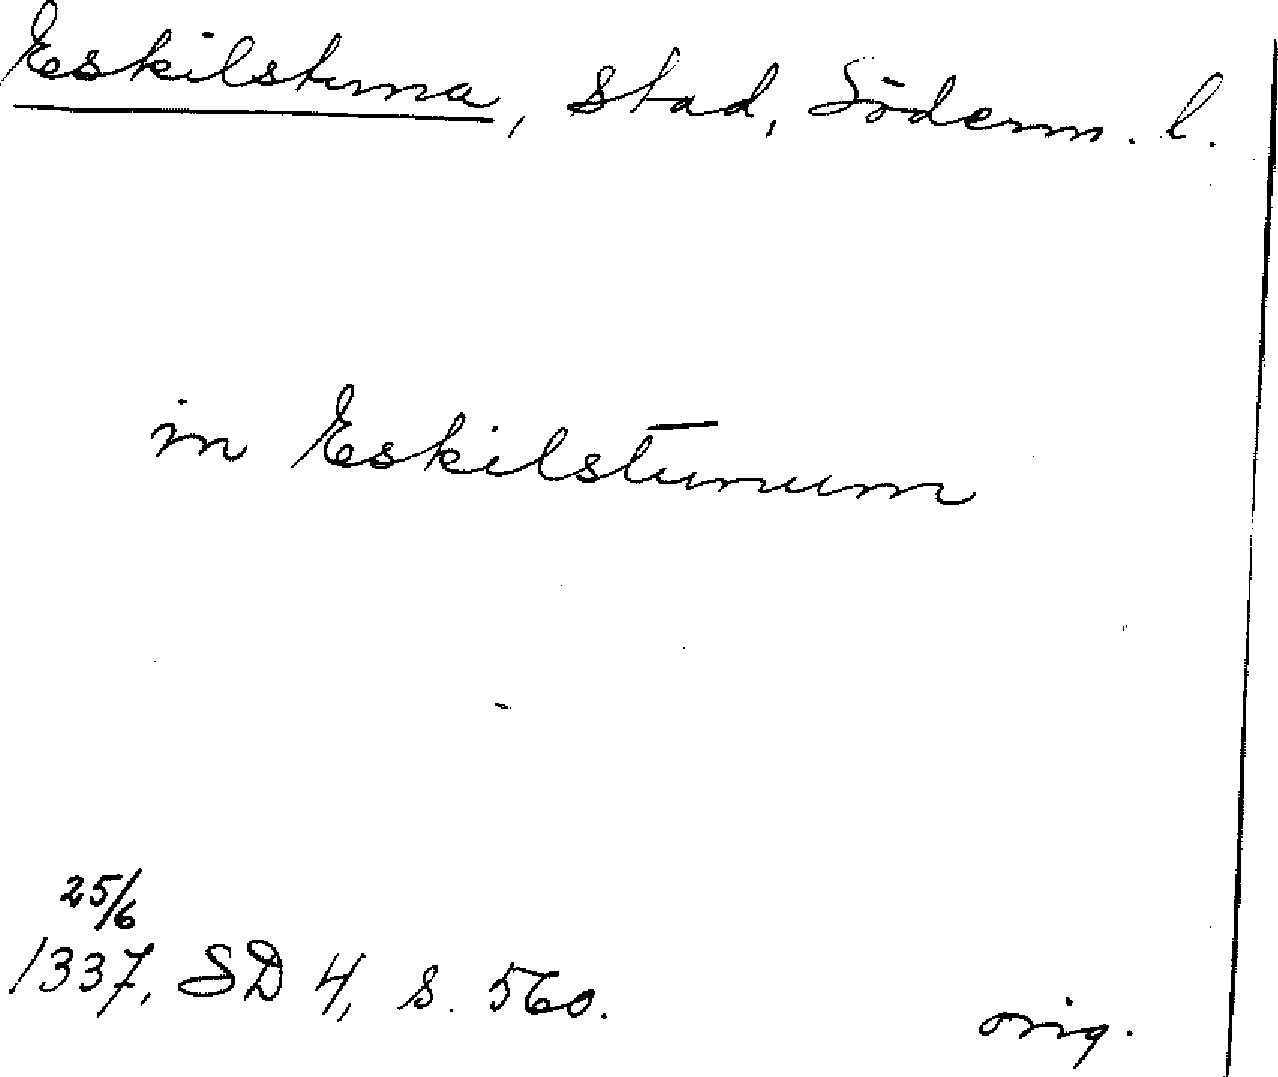 Eskilstuna, stad, Söderm. l.
in Eskilstunum
25/6
1337, SD 4, s. 560.
orig.